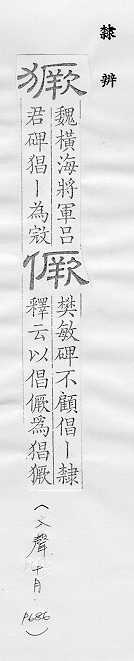 隸辨
獗
魏橫海將軍呂
君碑猖丨為寇
𠎮
樊敏碑不顧倡丨隸
釋云以倡𠎮為猖獗
(入聲十月 P686)